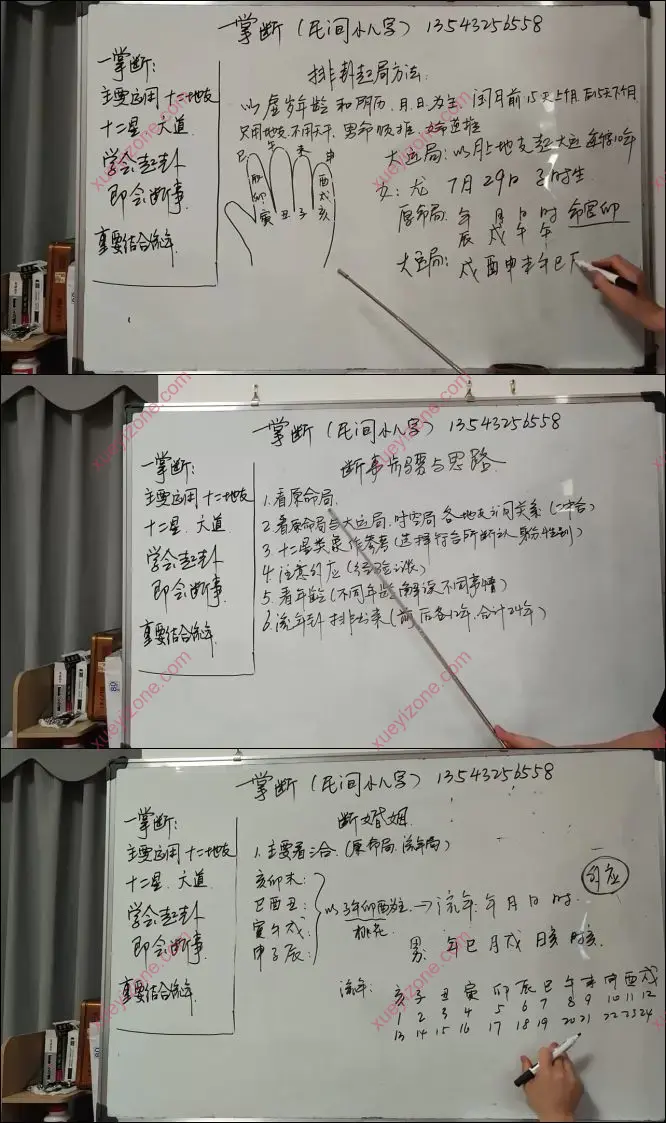 一掌断(民间小八字) 13543256558
一掌断:
主要运用十二地支
十二星 六道
学会起卦
即会断事.
重要结合流年.
排卦起局方法:
以虚岁年龄和阴历.月.日.为主 闰月前15天上个月 后15天下个月
只用地支.不用天干. 男命顺推. 女命逆推
大运局: 以月上地支起大运 每字10年
巳 午 未 申
辰 卯 寅 丑 子 酉 戌 亥
女: 龙 7月29日 子时生
原命局: 年 月 日 时 命宫卯
辰 戌 午 午
大运局: 戌 酉 申 未 午 巳
xueyizone.com
xueyizone.com
xueyizone.com
xueyizone.com
一掌断(民间小八字) 13543256558
一掌断:
主要运用十二地支
十二星. 六道
学会起卦
即会断事.
重要结合流年.
断事步骤与思路.
1.看原命局.
2.看原命局与大运局.时空局 各地支之间关系(一六合)
3.十二星类象作参考(选择符合所断之人身份性别)
4.注意外应(经验之谈)
5.看年龄(不同年龄 解读不同事情)
6.流年卦 排出来(前后各12年.合计24年)
xueyizone.com
xueyizone.com
xueyizone.com
xueyizone.com
一掌断(民间小八字) 13543256558
一掌断:
主要运用十二地支
十二星. 六道
学会起卦
即会断事.
重要结合流年.
断婚姻.
1.主要看三合.(原命局.流年局)
亥卯未:
巳酉丑:
寅午戌:
申子辰:
以子午卯酉为主.→流年.年月日时.
桃花
外应
男: 年巳 月戌 日亥 时亥.
流年: 亥 子 丑 寅 卯 辰 巳 午 未 申 酉 戌
1 2 3 4 5 6 7 8 9 10 11 12
13 14 15 16 17 18 19 20 21 22 23 24
xueyizone.com
xueyizone.com
xueyizone.com
xueyizone.com